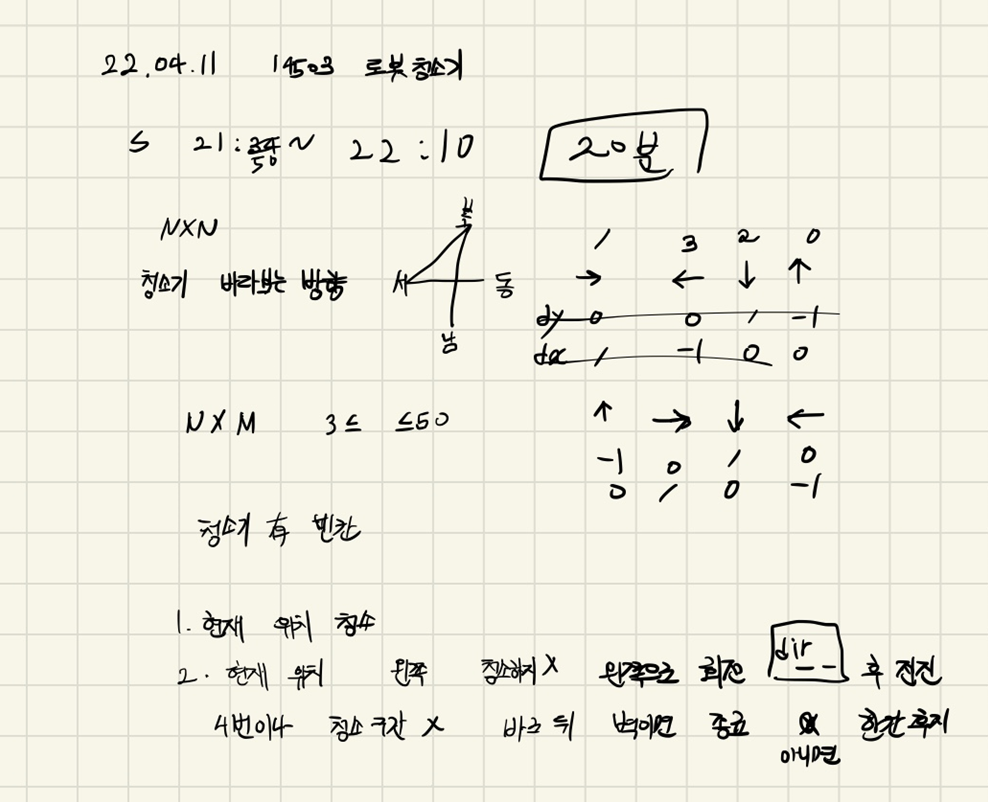 22.04.11 14503 로봇청소기
S 21:50 ~ 22:10 20분
N×N
청소기 바라보는 방향
북
서 동
남
1 3 2 0
→ ← ↓ ↑
dy 0 0 1 -1
dx 1 -1 0 0
N X M 3≤ ≤50
↑ → ↓ ←
-1 0 1 0
0 1 0 -1
청소기 有 빈칸
1. 현재 위치 청소
2. 현재 위치 왼쪽 청소하지X 왼쪽으로 회전 dir-- 후 전진
4번이나 청소 공간 X 바로 뒤 벽이면 종료 한칸 후지
아니면